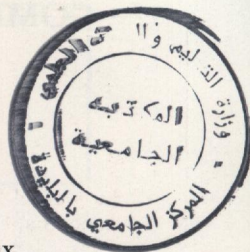 وزارة التعليم وال
العلمي
المكتبة
الجامعية
المركز الجامعي بالبليدة
x